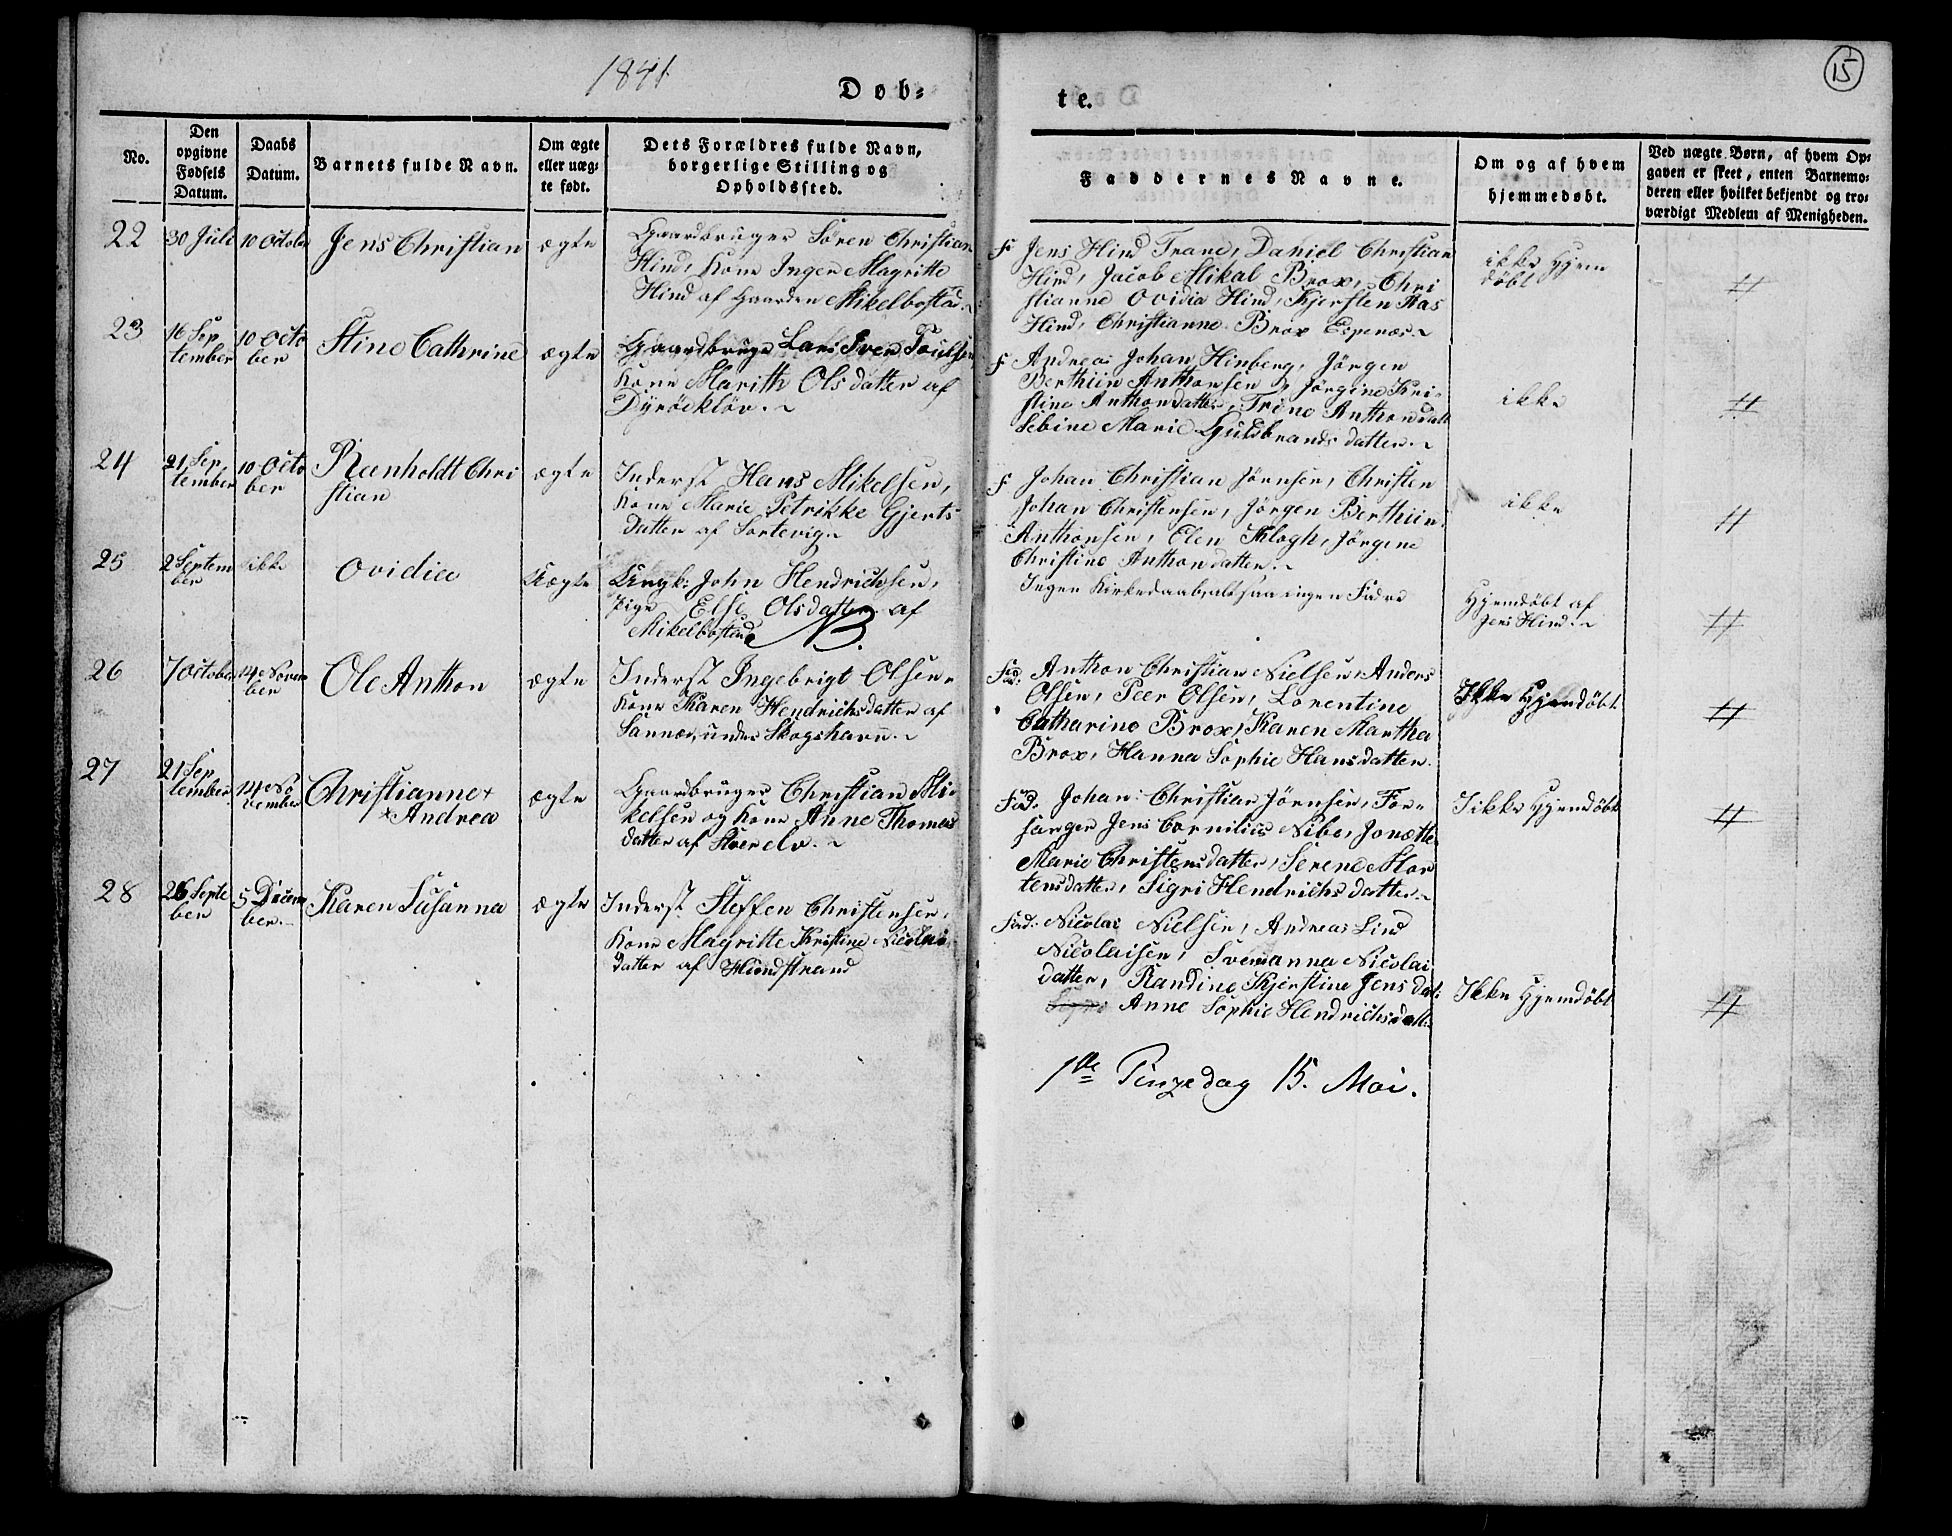 1841.
15
Døb=
te.
No.
Den
opgivne
Fødsels
Datum.
Daabs
Datum.
Barnets fulde Navn.
Om ægte
eller uæg-
te født.
Dets Forældres fulde Navn,
borgerlige Stilling og
Opholdssted.
Faddernes Navne.
Om og af hvem
hjemmedøbt.
Ved uægte Børn, af hvem Op-
gaven er skeet, enten Barnemo-
deren eller hvilket bekjendt og tro-
værdigt Medlem af Menigheden.
22
30 Juli
10 October
Jens Christian
ægte
Gaardbruger Sören Christian
Hind, Kone Inger Magritte
Hind af Gaarden Mikelbostad.
F Jens Hind Trane, Daniel Christian
Hind, Jacob Mikal Brox, Chri
stianne Ovidia Hind, Kjersten Aas
Hind, Christianne Brox Espenæs.
ikke Hjem
döbt
#
23
16 Sep
tember
10 Octo
ber
Stine Cathrine
ægte
Gaardbruger Lars Sven Poulsen
Kone Marith Olsdatter af
Dyröeklöv.
F Andreas Johan Hinberg, Jörgen
Berthiin Anthonsen, Jörgine Kri-
stine Anthondatter, Trine Anthondatt
Sebine Marie Guldbrandsdatter.
ikke
#
24
21 Sep
tember
10 Octo
ber
Ranholdt Chri
stian
ægte
Inderst Hans Mikelsen,
Kone Marie Petrikke Gjerts
datter af Sortevig.
F Johan Christian Jörnsen, Christen
Johan Christensen, Jörgen Berthiin
Anthonsen, Elen Klogh, Jörgine
Christine Anthondatter.
ikke
#
25
2 Septem
ber
ikke
Ovidia
Uægte
Ungk: John Hendrichsen,
Pige Else Olsdatter af
Mikelbostad NB.
Ingen Kirkedaab, altsaa ingen Fadre
Hjemdöbt af
Jens Hind.
#
26
7 October
14 Novem
ber
Ole Anthon
ægte
Inderst Ingebrigt Olsen,
Kone Karen Hendrichsdatter af
Sannæs, under Skogshavn.
Fad: Anthon Christian Nielsen, Anders
Olsen, Peer Olsen, Lorentine
Catharine Brox, Karen Martha
Brox, Hanna Sophie Hansdatter.
Ikke Hjemdöbt
#
27
21 Sep
tember
14 No
vember
Christianne
Andrea
ægte
Gaardbruger Christian Mi-
kelsen og Kone Anne Thomas
datter af
Fad: Johan Christian Jörnsen, For-
sanger Jens Cornilius Nibe, Jonætte
Marie Christensdatter, Serene Mor
tensdatter, Sigri Hendrichsdatter.
Ikke Hjemdöbt
#
28
26 Septe
ber
5 Decem
ber
Karen Susanna
ægte
Inderst Steffen Christensen,
Kone Magritte Kristine Nicolai
datter af Hundstrand
Fad: Nicolai Nielsen, Andreas Lind
Nicolaisen, Svenanna Nicolai
datter, Randine Kjerstine Jensdat:
Anne Sophie Hendrichsdatt:
Ikke Hjemdöbt
#
1ste Pinzedag 15. Mai.